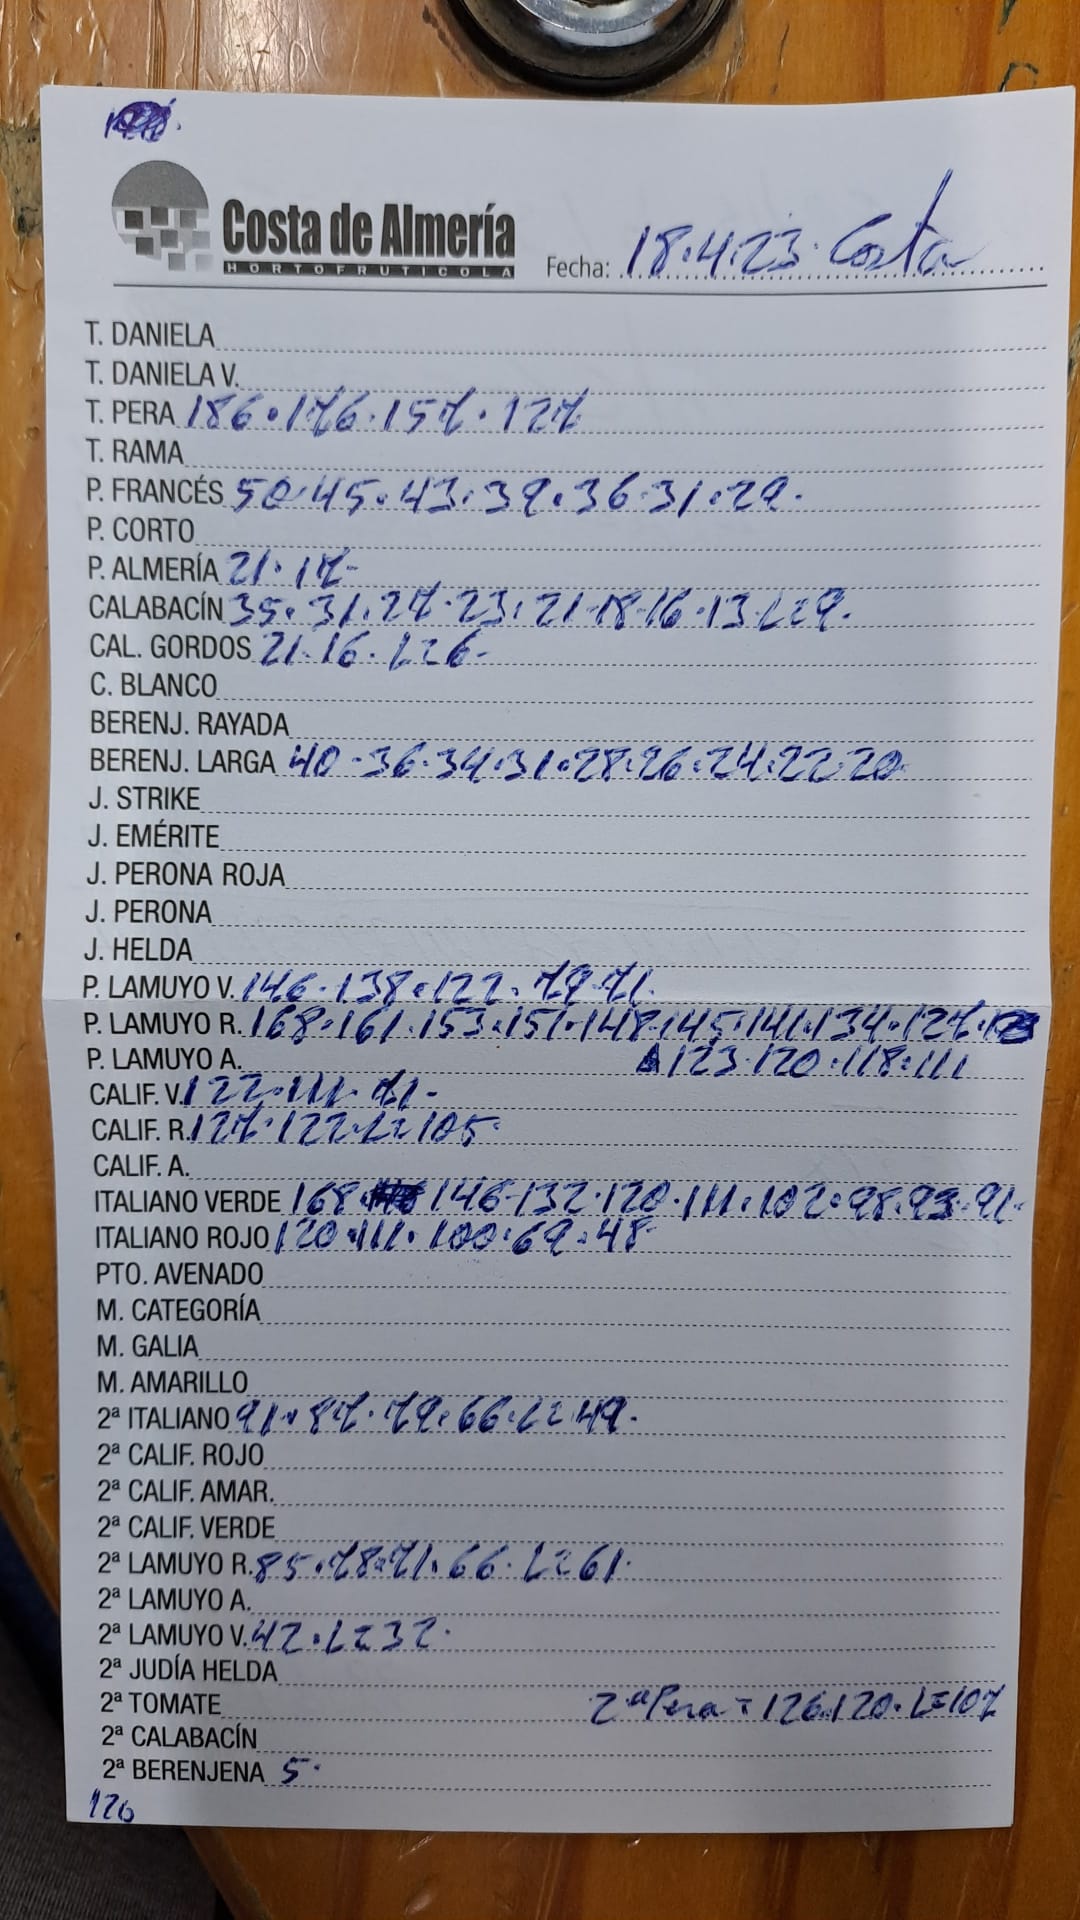 Costa de Almería
HORTOFRUTICOLA
Fecha: 18.4.23. Costa
T. DANIELA
T. DANIELA V.
T. PERA 186.176.157.127
T. RAMA
P. FRANCÉS 50.45.43.39.36.31.29.
P. CORTO
P. ALMERÍA 21.17-
CALABACÍN 35.31.27.23.21-18-16.13.L=9.
CAL. GORDOS 21.16.L=6-
C. BLANCO
BERENJ. RAYADA
BERENJ. LARGA 40-36.34.31.28.26.24.22.20.
J. STRIKE
J. EMÉRITE
J. PERONA ROJA
J. PERONA
J. HELDA
P. LAMUYO V. 146.138.122.79.71.
P. LAMUYO R. 168.161.153.151.148.145.141.134.127.
P. LAMUYO A. 123.120.118.111
CALIF. V. 122.111.71-
CALIF. R. 127.122.L=105.
CALIF. A.
ITALIANO VERDE 168. 146-132.120.111.102.98.93.91.
ITALIANO ROJO 120.111.100.69.48-
PTO. AVENADO
M. CATEGORÍA
M. GALIA
M. AMARILLO
2ª ITALIANO 91.87.79.66.L=49.
2ª CALIF. ROJO
2ª CALIF. AMAR.
2ª CALIF. VERDE
2ª LAMUYO R. 85.78.71.66.L=61.
2ª LAMUYO A.
2ª LAMUYO V. 42.L=32.
2ª JUDÍA HELDA
2ª TOMATE 2ª Pera = 126.120.L=107
2ª CALABACÍN
2ª BERENJENA 5.
126